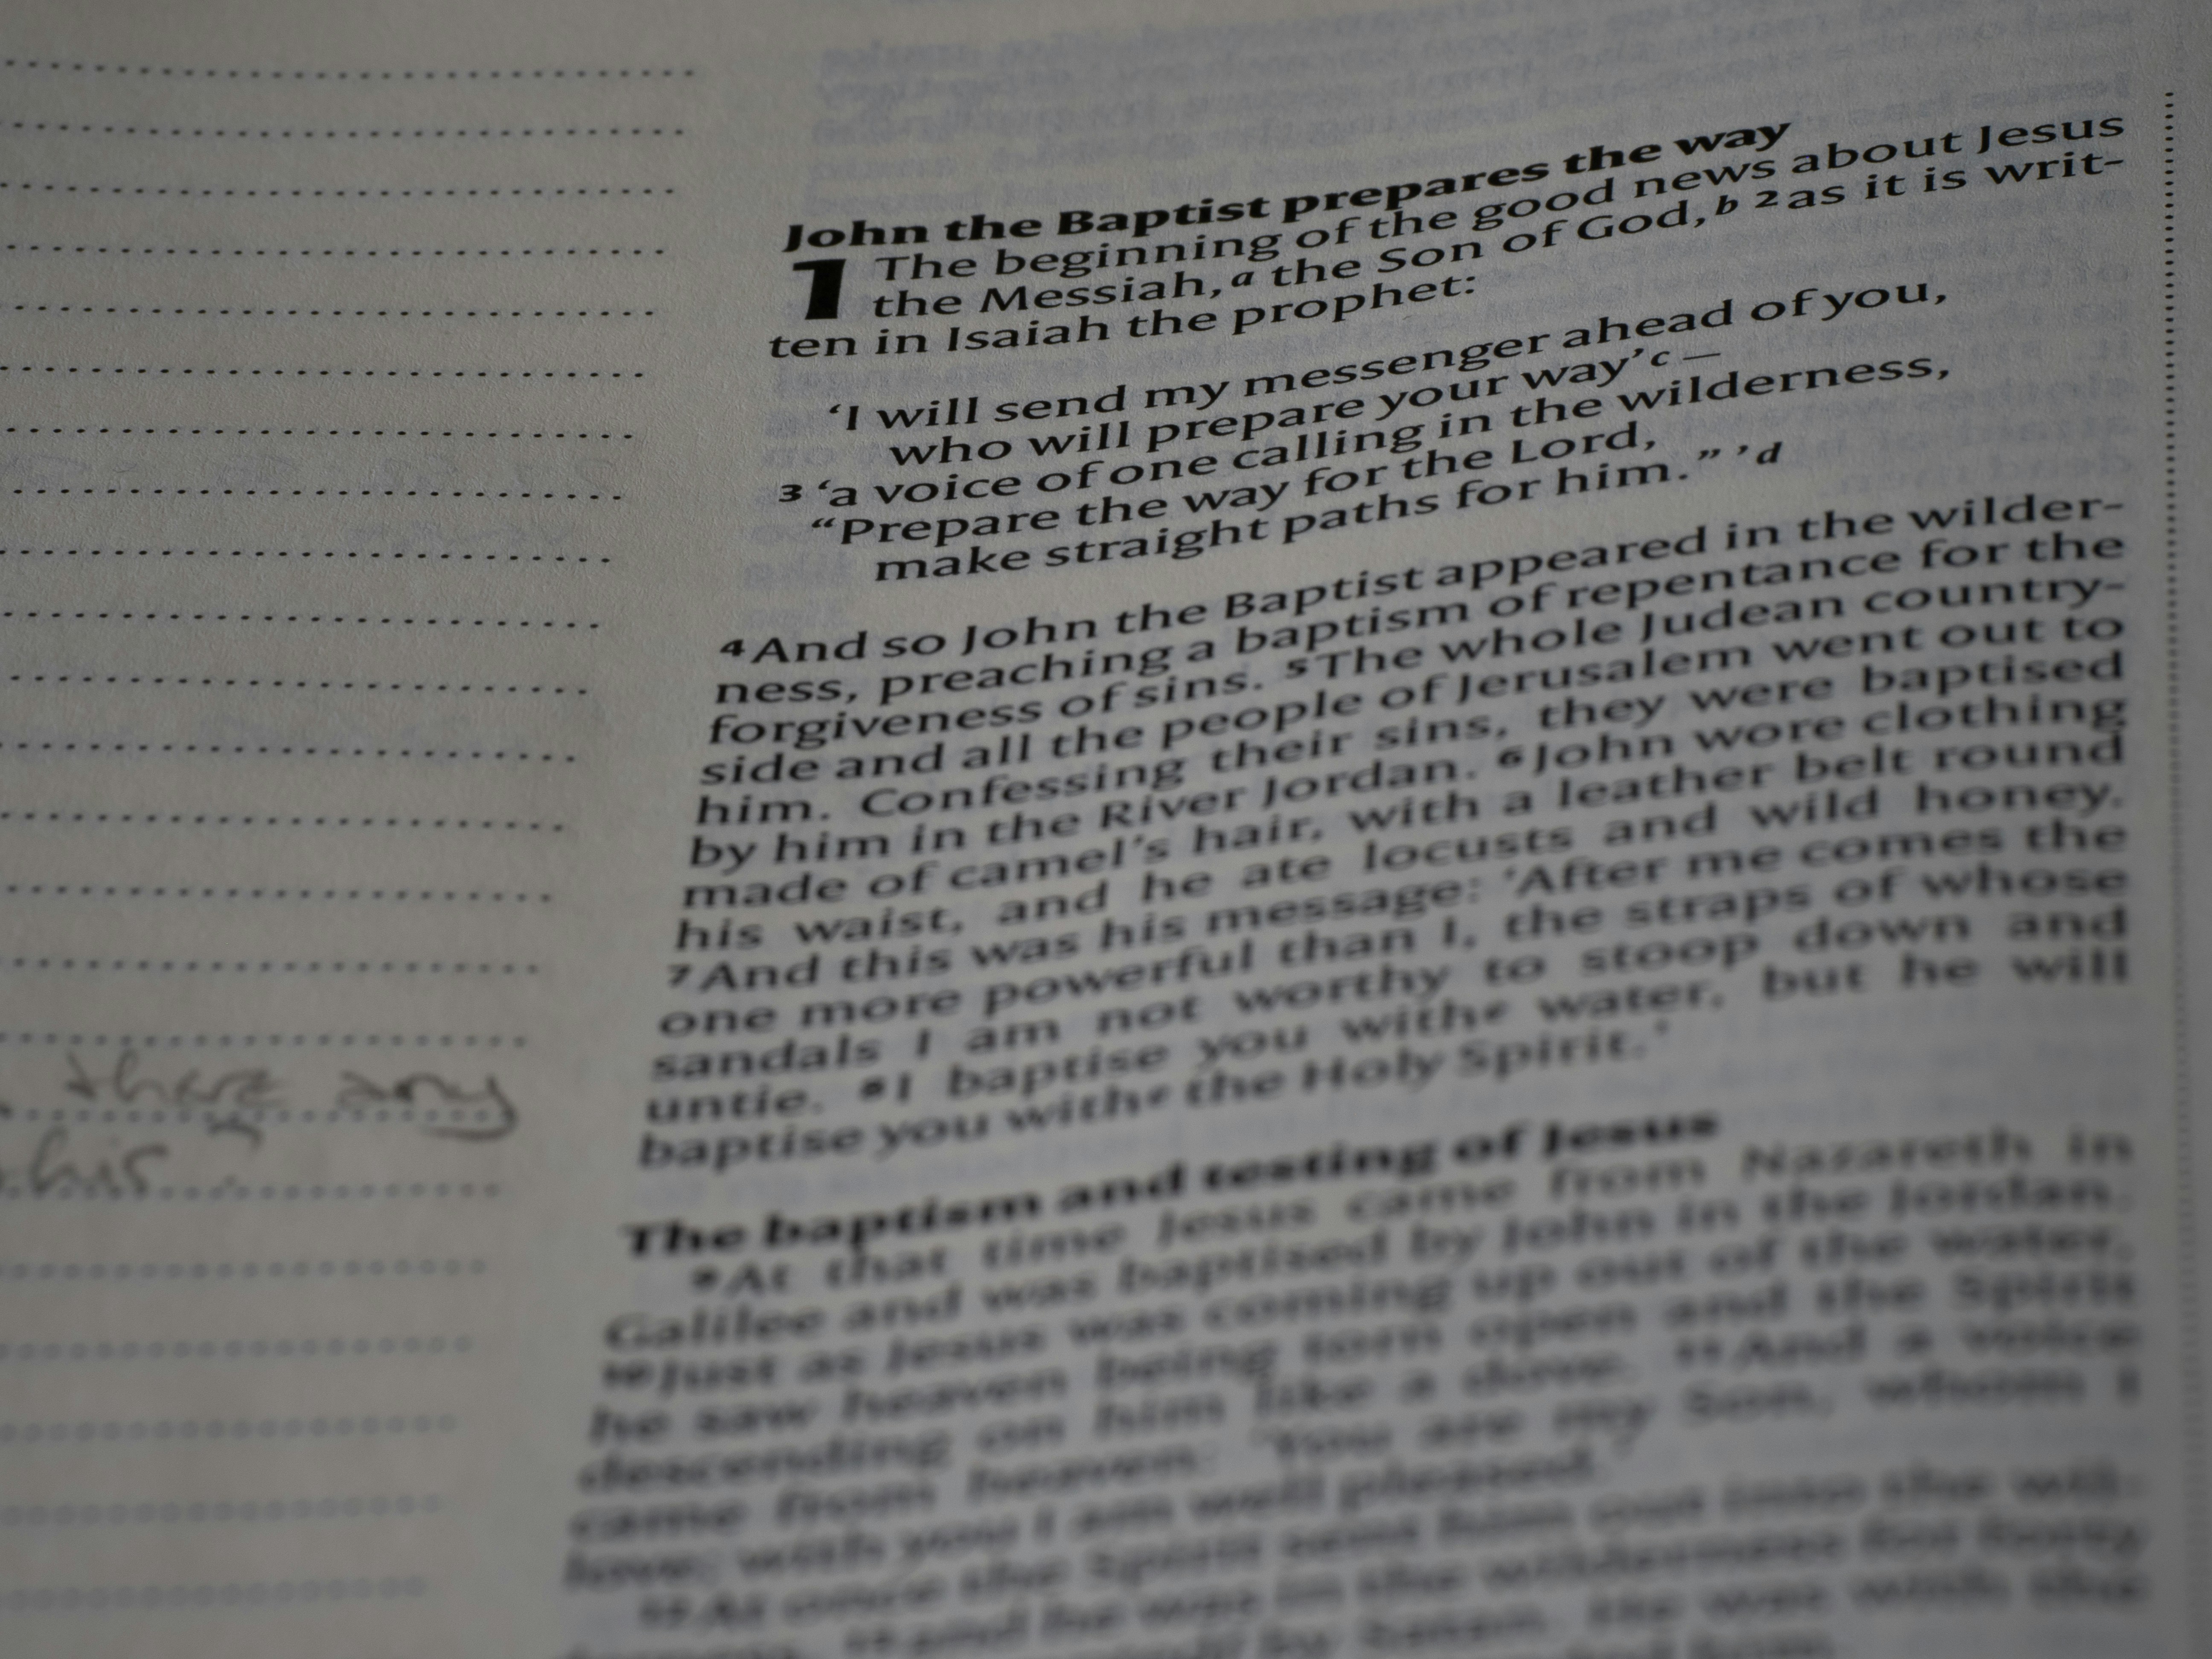 there any
his?
John the Baptist prepares the way
1 The beginning of the good news about Jesus
the Messiah,a the Son of God,b 2as it is writ-
ten in Isaiah the prophet:
‘I will send my messenger ahead of you,
who will prepare your way’c —
3 ‘a voice of one calling in the wilderness,
“Prepare the way for the Lord,
make straight paths for him.” ’d
4And so John the Baptist appeared in the wilder-
ness, preaching a baptism of repentance for the
forgiveness of sins. 5The whole Judean country-
side and all the people of Jerusalem went out to
him. Confessing their sins, they were baptised
by him in the River Jordan. 6John wore clothing
made of camel’s hair, with a leather belt round
his waist, and he ate locusts and wild honey.
7And this was his message: ‘After me comes the
one more powerful than I, the straps of whose
sandals I am not worthy to stoop down and
untie. 8I baptise you withe water, but he will
baptise you withe the Holy Spirit.’
The baptism and testing of Jesus
9At that time Jesus came from Nazareth in
Galilee and was baptised by John in the Jordan.
10Just as Jesus was coming up out of the water,
he saw heaven being torn open and the Spirit
descending on him like a dove. 11And a voice
came from heaven: ‘You are my Son, whom I
love; with you I am well pleased.’
12At once the Spirit sent him out into the wil-
13and he was in the wilderness for forty
by Satan. He was with the